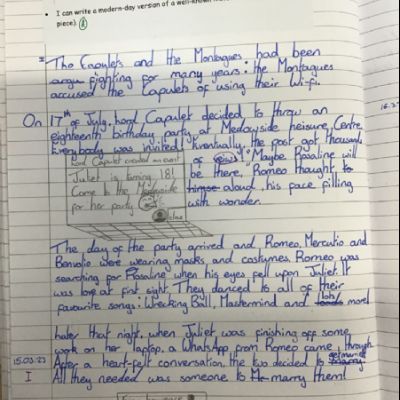 I can write a modern-day version of a well-known
piece).
The Capulets and the Montagues had been
fighting for many years: the Montagues
accused the Capulets of using their Wi-fi.
On 17th of July, Lord Capulet decided to throw an
eighteenth birthday party at Medayside Leisure Centre.
Everybody was invited! Eventually, the post got thousands
of views! "Maybe Rosaline will
be there," Romeo thought
aloud, his face filling
with wonder.
Lord Capulet created an event
Juliet is turning 18!
Come to the
for her party
The day of the party arrived and Romeo, Mercutio and
Benvolio were wearing masks and costumes. Romeo was
searching for Rosaline when his eyes fell upon Juliet. It
was love at first sight. They danced to all of their
favourite songs: Wrecking Ball, Mastermind and lots more!
Later that night, when Juliet was finishing off some
work on her laptop, a WhatsApp from Romeo came through.
15.03.23 After a heart-felt conversation, the two decided to get married
I All they needed was someone to marry them!